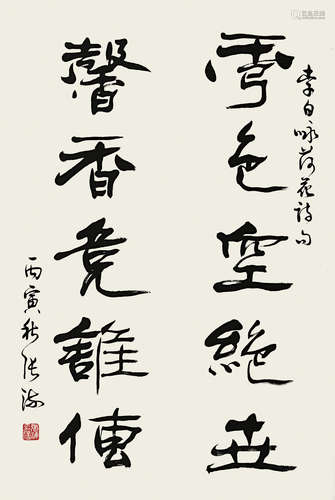 李白咏荷花詩句
秀色空絕世
馨香竟誰傳
丙寅秋張海